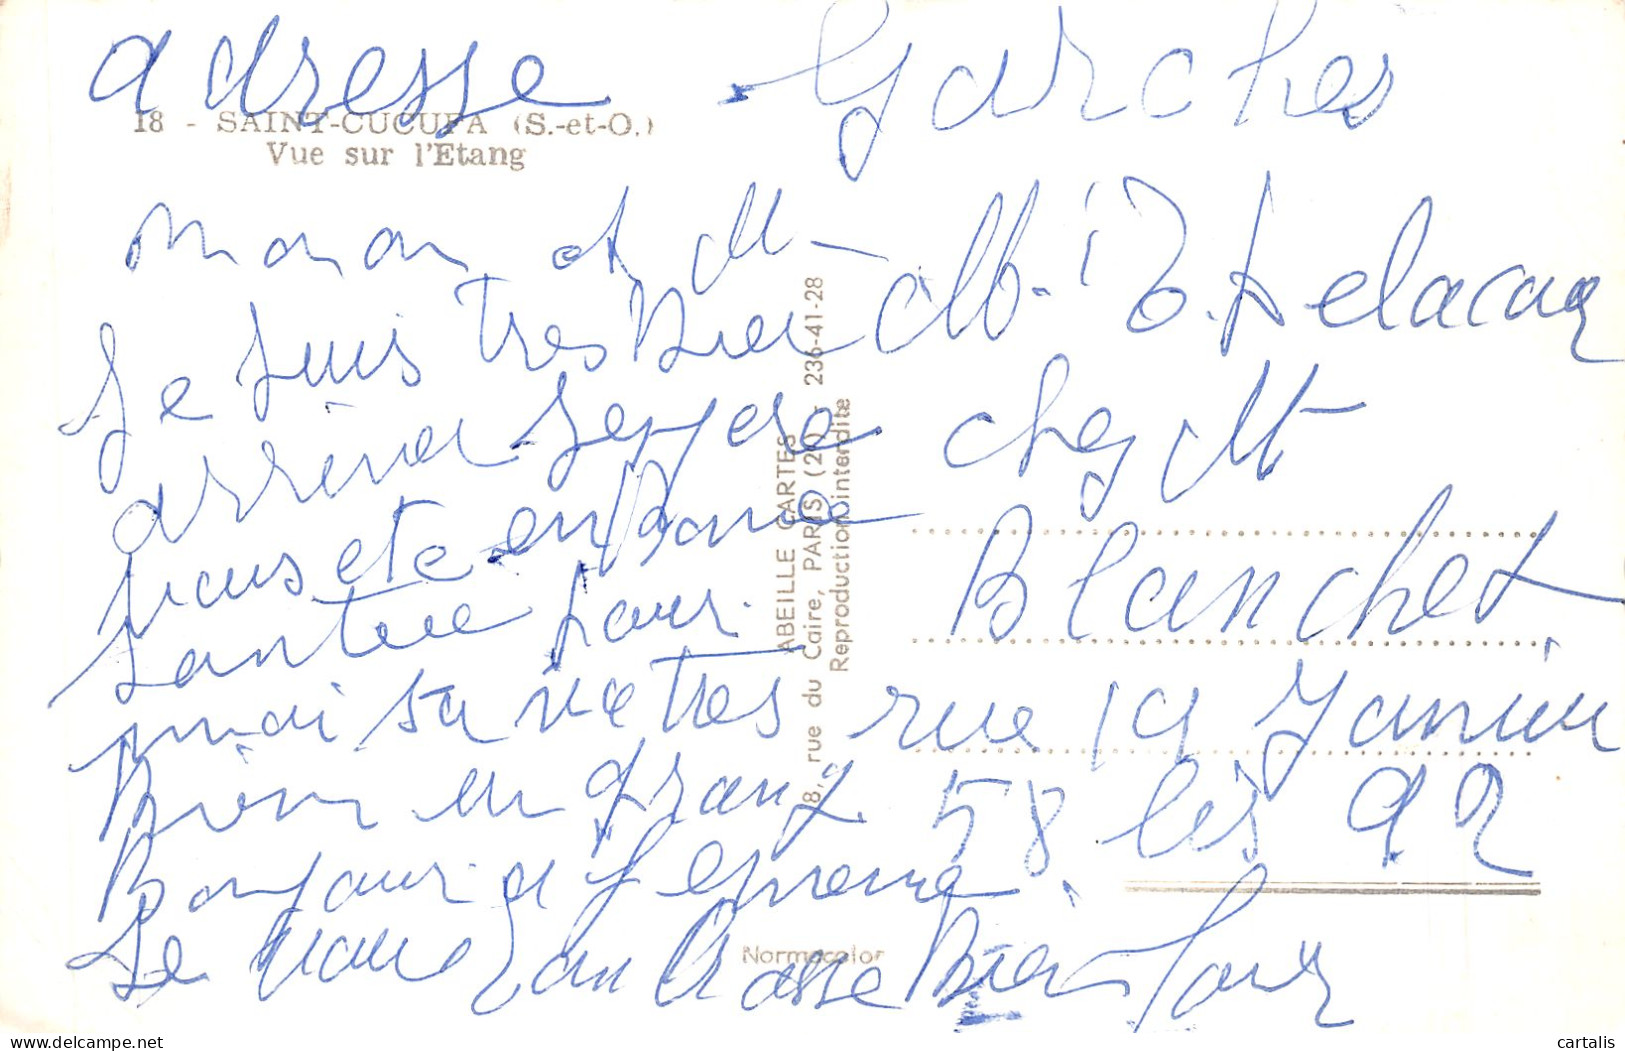 adresse Garches
18 - SAINT-CUCUFA (S.-et-O.)
Vue sur l'Etang
et M
Je suis tres Bien
arriver Jespere
vous ete en Bonne
Santee pour
moi sa va tres
Bien en
Bonjour a
Je vous Embrasse Bien fort
M. D. Delacour
chez M
Blanchet
rue 19 Janvier
58 bis 92
ABEILLE CARTES
8, rue du Caire, PARIS (2e) - 236-41-28
Reproduction interdite
Normacolor
cartalis